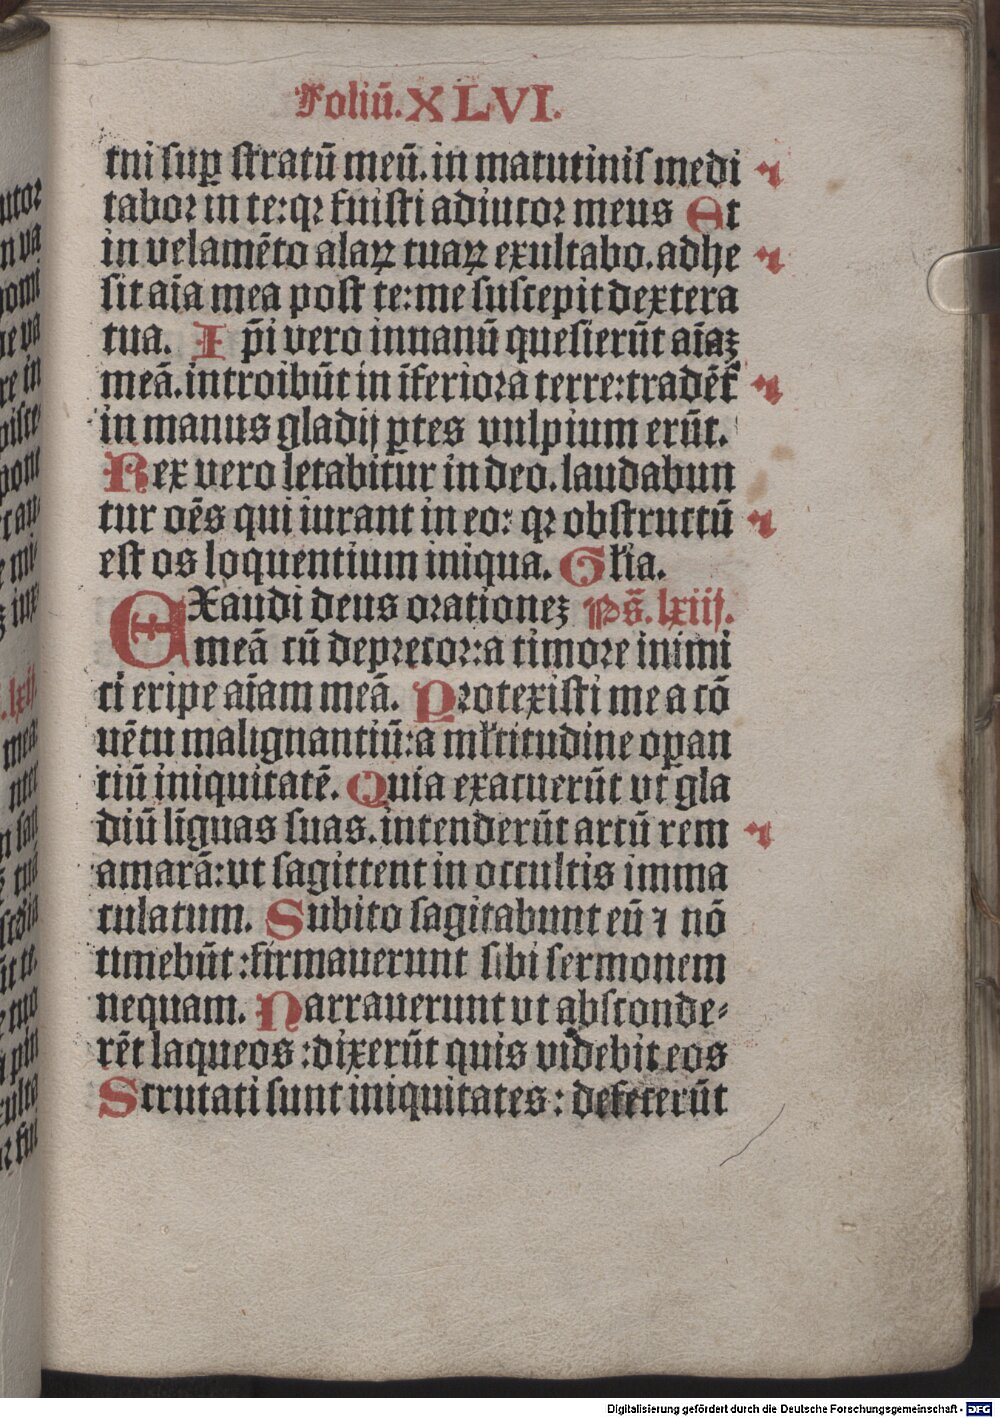 Foliū. XLVI.
tui suꝑ stratū meū. in matutinis medi
tabor in te: qꝛ fuisti adiutor meus Et
in velamēto alaꝝ tuaꝝ exultabo. adhe
sit aīa mea post te: me suscepit dextera
tua. Ip̄i vero in uanū quesierūt aīaꝫ
meā. introibūt in īferiora terre: tradēt᷑
in manus gladij ꝑtes vulpium erūt.
Rex vero letabitur in deo. laudabun
tur oēs qui iurant in eo: qꝛ obstructū
est os loquentium iniqua. Gl̄ia.
EXaudi deus orationeꝫ Ps̄. lxiij.
meā cū deprecor: a timore inimi
ci eripe aīam meā. Protexisti me a cō
uētu malignantiū: a ml̄titudine oꝑan
tiū iniquitatē. Quia exacuerūt vt gla
diū līguas suas. intenderūt arcū rem
amarā: vt sagittent in occultis imma
culatum. Subito sagitabunt eū ⁊ nō
timebūt: firmauerunt sibi sermonem
nequam. Narrauerunt vt absconde⸗
rēt laqueos: dixerūt quis videbit eos
Scrutati sunt iniquitates: defecerūt
Digitalisierung gefördert durch die Deutsche Forschungsgemeinschaft - DFG